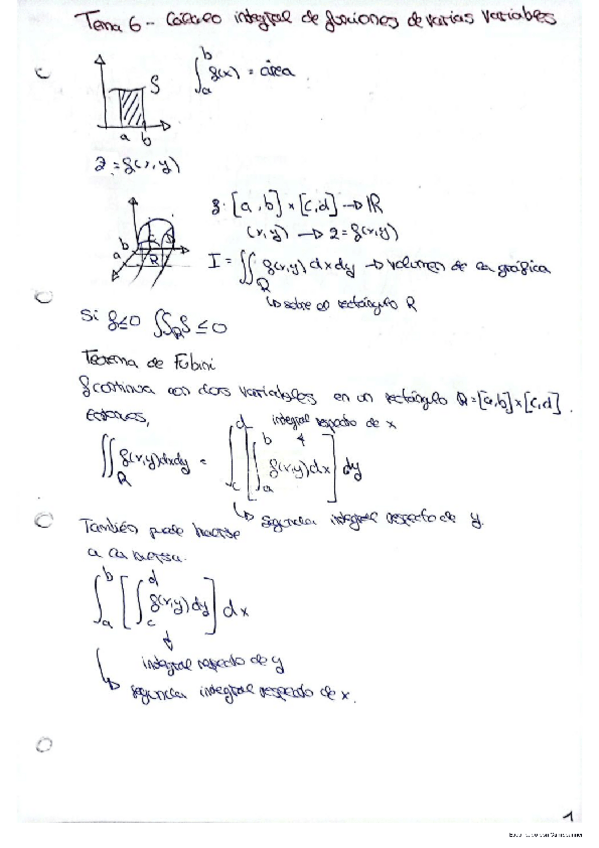 Tema 6 - Cálculo integral de funciones de varias variables
∫_a^b f(x) = área.
f
a b
z = f(x,y)
f: [a,b] × [c,d] → ℝ
(x,y) → z = f(x,y)
b
a
R
I = ∬_R f(x,y) dxdy → volumen de la gráfica
↳ sobre el rectángulo R
Si f ≤ 0 ∬_R f ≤ 0
Teorema de Fubini
f continua con dos variables en un rectángulo R = [a,b] × [c,d].
Entonces,
integral respecto de x
∬_R f(x,y) dxdy = ∫_c^d [∫_a^b f(x,y) dx] dy
↳ segunda integral respecto de y.
También puede hacerse
a la inversa.
∫_a^b [∫_c^d f(x,y) dy] dx
↓
integral respecto de y
↳ segunda integral respecto de x.
1